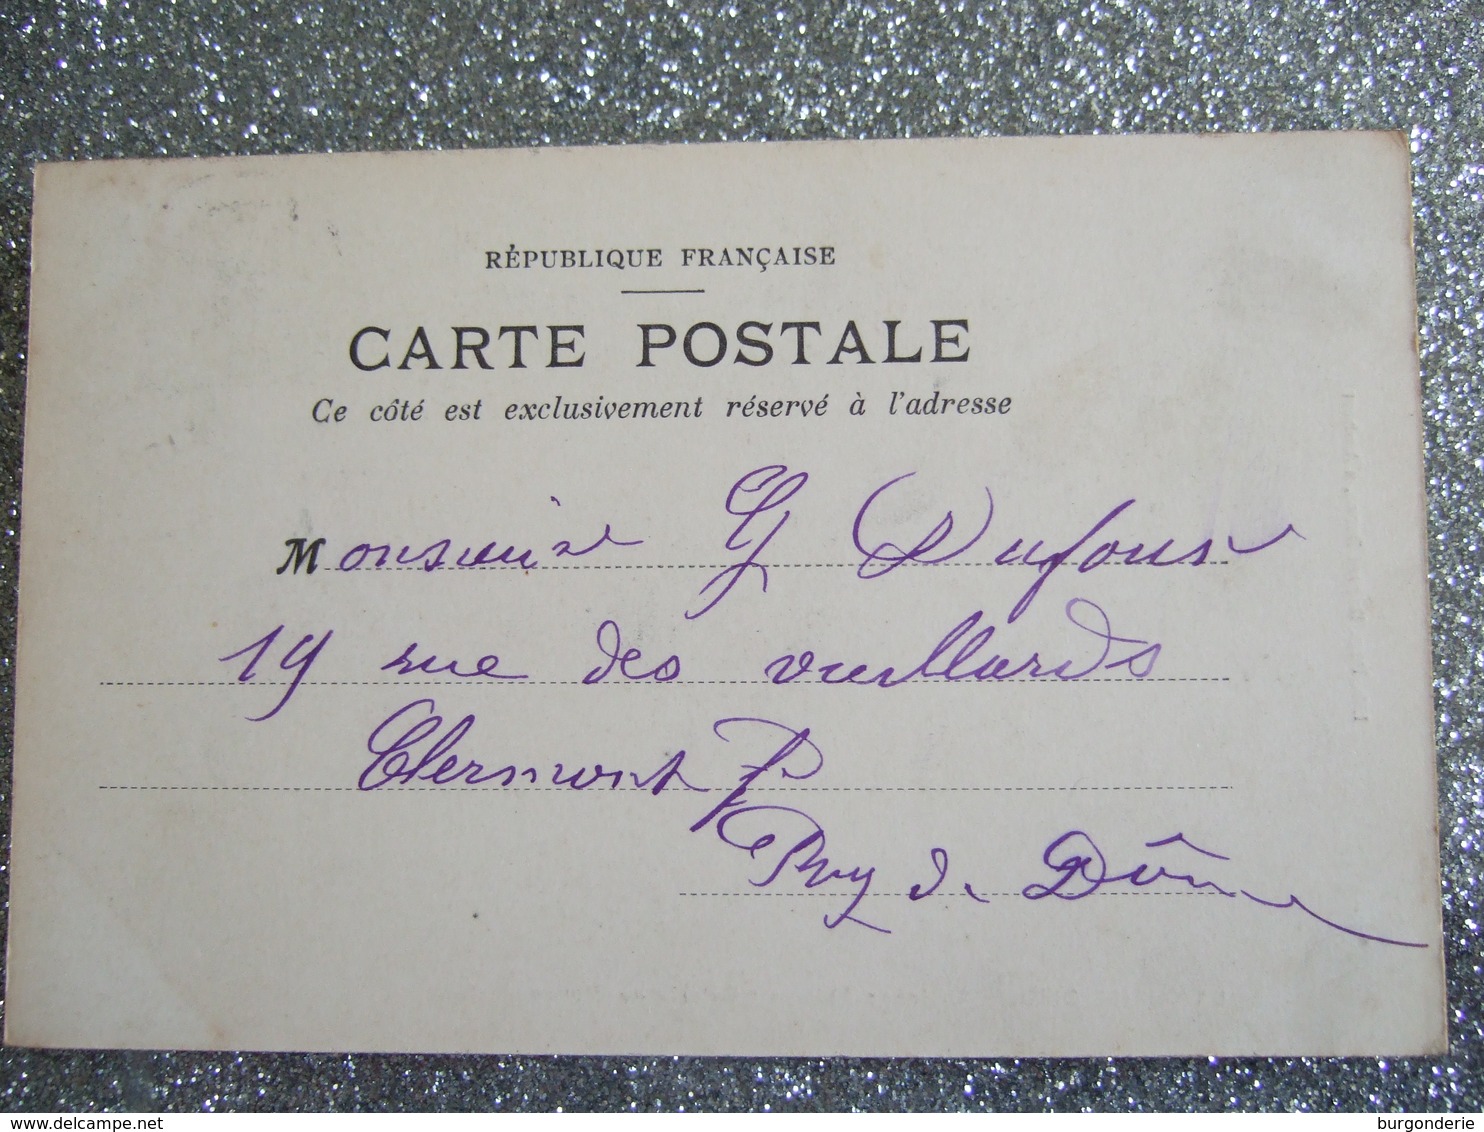 RÉPUBLIQUE FRANÇAISE
CARTE POSTALE
Ce côté est exclusivement réservé à l'adresse
Monsieur G Dufour
19 rue des vieillards
Clermont Fd
Puy de Dôme
delcampe.net
burgonderie